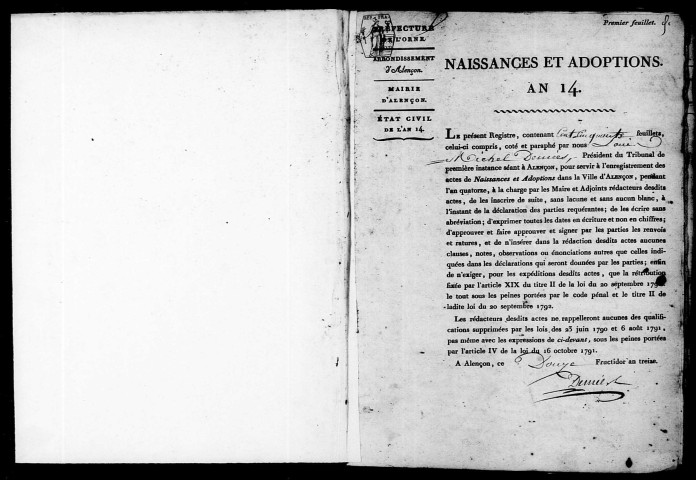 Premier feuillet.
PRÉFECTURE
DE L'ORNE
ARRONDISSEMENT
d'Alençon.
MAIRIE
D'ALENÇON.
ÉTAT CIVIL
DE L'AN 14.
NAISSANCES ET ADOPTIONS.
AN 14.
LE présent Registre, contenant Cent cinquante feuillets,
celui-ci compris, coté et paraphé par nous Louis
Michel Demées, Président du Tribunal de
première instance séant à ALENÇON, pour servir à l'enregistrement des
actes de Naissances et Adoptions dans la Ville d'ALENÇON, pendant
l'an quatorze, à la charge par les Maire et Adjoints rédacteurs desdits
actes, de les inscrire de suite, sans lacune et sans aucun blanc, à
l'instant de la déclaration des parties requérantes; de les écrire sans
abréviation; d'exprimer toutes les dates en écriture et non en chiffres;
d'approuver et faire approuver et signer par les parties les renvois
et ratures, et de n'insérer dans la rédaction desdits actes aucunes
clauses, notes, observations ou énonciations autres que celles indi-
quées dans les déclarations qui seront données par les parties; enfin
de n'exiger, pour les expéditions desdits actes, que la rétribution
fixée par l'article XIX du titre II de la loi du 20 septembre 1792
le tout sous les peines portées par le code pénal et le titre II de
ladite loi du 20 septembre 1792.
Les rédacteurs desdits actes ne rappelleront aucunes des qualifi-
cations supprimées par les lois des 23 juin 1790 et 6 août 1791,
pas même avec les expressions de ci-devant, sous les peines portées
par l'article IV de la loi du 16 octobre 1791.
A Alençon, ce Douze Fructidor an treize.
Demées